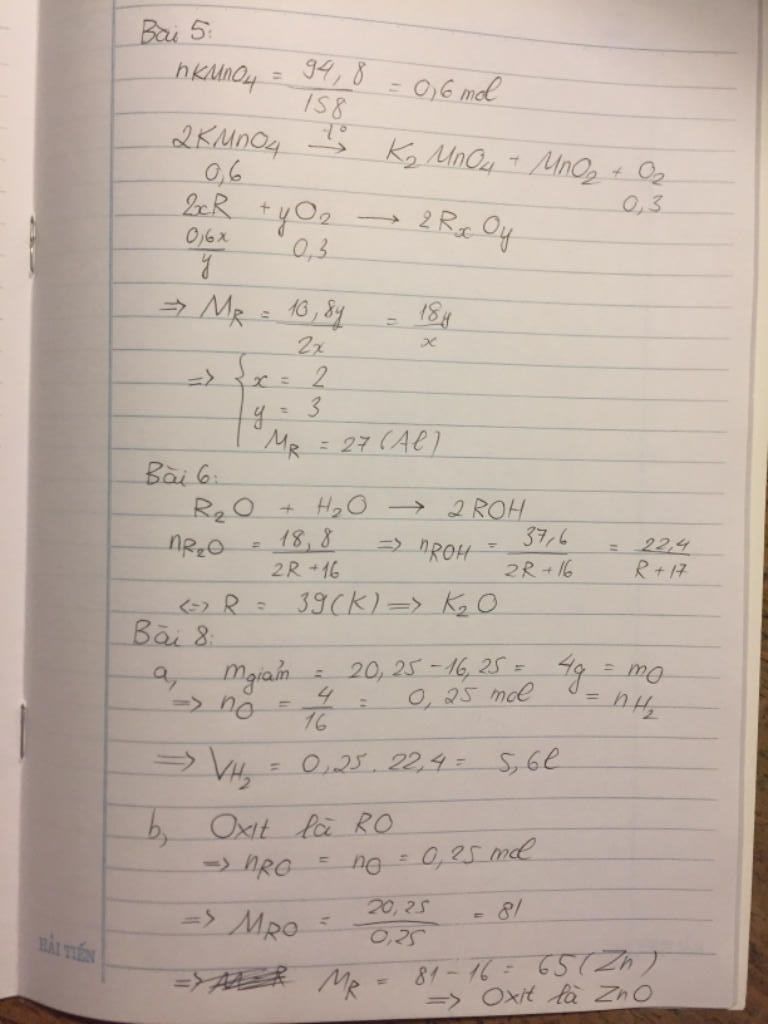 Bài 5:
nKMnO4 = 94,8/158 = 0,6 mol
2KMnO4 →(t°) K2MnO4 + MnO2 + O2
0,6 0,3
2xR + yO2 → 2RxOy
0,6x/y 0,3
=> MR = 10,8y/2x = 18y/x
=> { x = 2
y = 3
MR = 27 (Al)
Bài 6:
R2O + H2O → 2ROH
nR2O = 18,8/(2R+16) => nROH = 37,6/(2R+16) = 22,4/(R+17)
<=> R = 39(K) => K2O
Bài 8:
a, mgiảm = 20,25 - 16,25 = 4g = mO
=> nO = 4/16 = 0,25 mol = nH2
=> VH2 = 0,25 . 22,4 = 5,6l
b, Oxit là RO
=> nRO = nO = 0,25 mol
=> MRO = 20,25/0,25 = 81
=> MR = 81 - 16 = 65 (Zn)
=> Oxit là ZnO
HẢI TIẾN